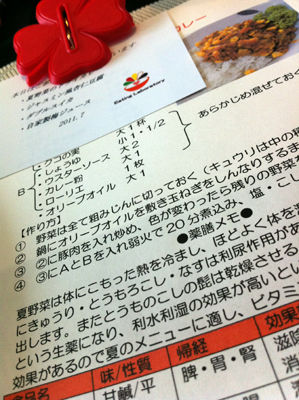 本日
夏野菜の
います
ジャスミン風杏仁豆腐
・ダブルスイカ
・自家製梅ジュース
2011.7
Laboratory
カレー
・クコの実 大1杯
・しょうゆ 小1・1/2
B ・ウスターソース 大2
・カレー粉 大1
・ローリエ 1枚
・オリーブオイル 大1
あらかじめ混ぜておく
【作り方】
① 野菜は全て粗みじんに切っておく(キュウリは中の種
② 鍋にオリーブオイルを敷き玉ねぎをしんなりするま
③ ②に豚肉を入れ炒め、色が変わったら残りの野菜
④ ③にAとBを入れ弱火で20分煮込み、塩・こ
●薬膳メモ●
夏野菜は体にこもった熱を冷まし、ほどよく体を
にきゅうり・とうもろこし・なすは利尿作用があ
出します。またとうもろこしの髭は乾燥させる
という生薬になり、利水利湿の効果が高いとし
効果があるので夏のメニューに適し、ビタミ
食品名 味/性質 帰経 効果
甘鹹/平 脾・胃・腎 滋陰